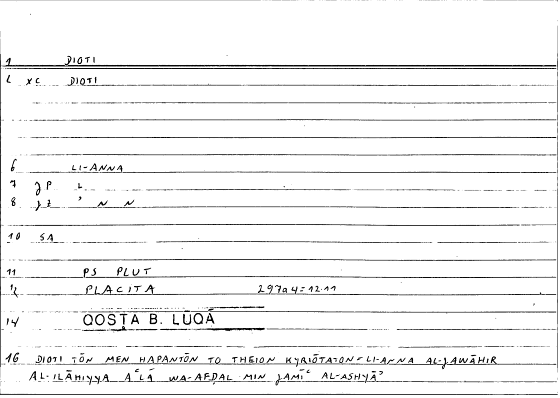 1 DIOTI
L xc DIOTI
6 LI-ANNA
7 JP L
8 JZ ' N N
10 SA
11 PS PLUT
12 PLACITA 297a4=12.11
14 QOSṬĀ B. LŪQĀ
16 DIOTI TŌN MEN HAPANTŌN TO THEION KYRIŌTATON = LI-ANNA AL-JAWĀHIR
AL-ILĀHIYYA AʿLĀ WA-AFḌAL MIN JAMĪʿ AL-ASHYĀʾ